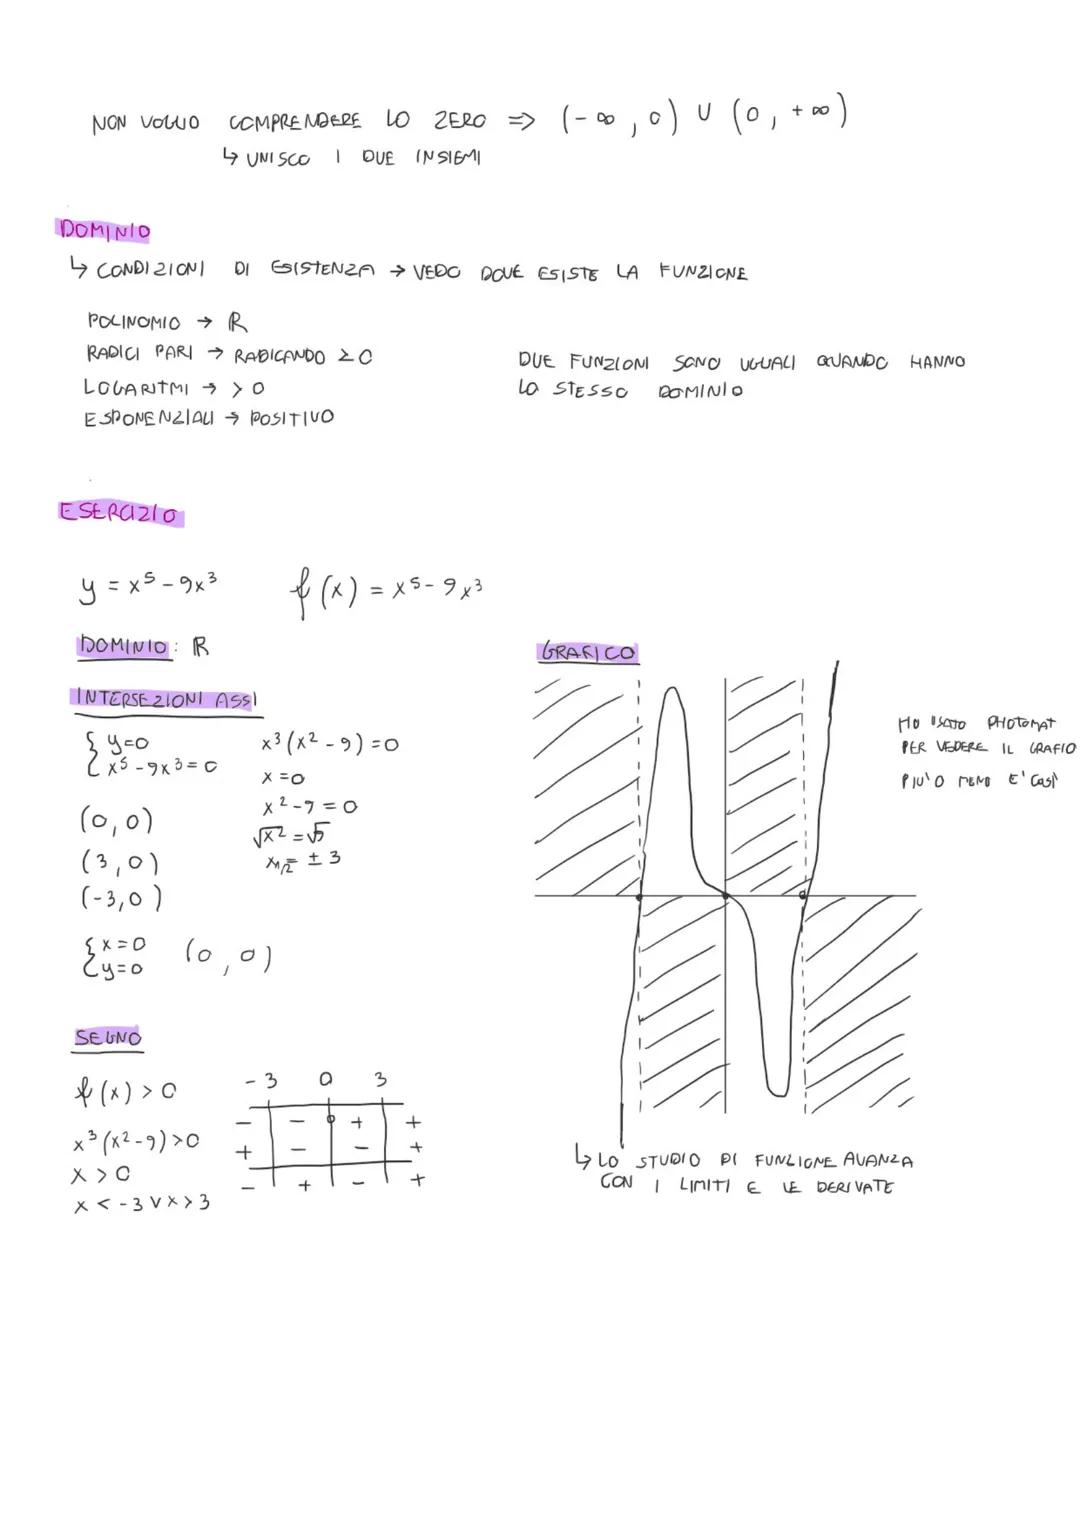 NON VOGLIO COMPRENDERE LO ZERO ⇒ (-∞, 0) ∪ (0, +∞)
↳ UNISCO I DUE INSIEMI
DOMINIO
↳ CONDIZIONI DI ESISTENZA → VEDO DOVE ESISTE LA FUNZIONE
POLINOMIO → ℝ
RADICI PARI → RADICANDO ≥ 0
LOGARITMI → > 0
ESPONENZIALI → POSITIVO
DUE FUNZIONI SONO UGUALI QUANDO HANNO
LO STESSO DOMINIO
ESERCIZIO
y = x⁵ - 9x³ f(x) = x⁵ - 9x³
DOMINIO: ℝ
INTERSEZIONI ASSI
{ y=0
x⁵ - 9x³ = 0
x³(x² - 9) = 0
x = 0
x² - 9 = 0
√x² = √9
x1/2 = ± 3
(0, 0)
(3, 0)
(-3, 0)
{ x = 0
y = 0
(0, 0)
SEGNO
f(x) > 0
x³(x² - 9) > 0
x > 0
x < -3 ∨ x > 3
-3 0 3
- - + +
+ - - +
- + - +
GRAFICO
HO USATO PHOTOMAT
PER VEDERE IL GRAFIO
PIU' O MENO E' COSÌ
↳ LO STUDIO DI FUNZIONE AVANZA
CON I LIMITI E LE DERIVATE